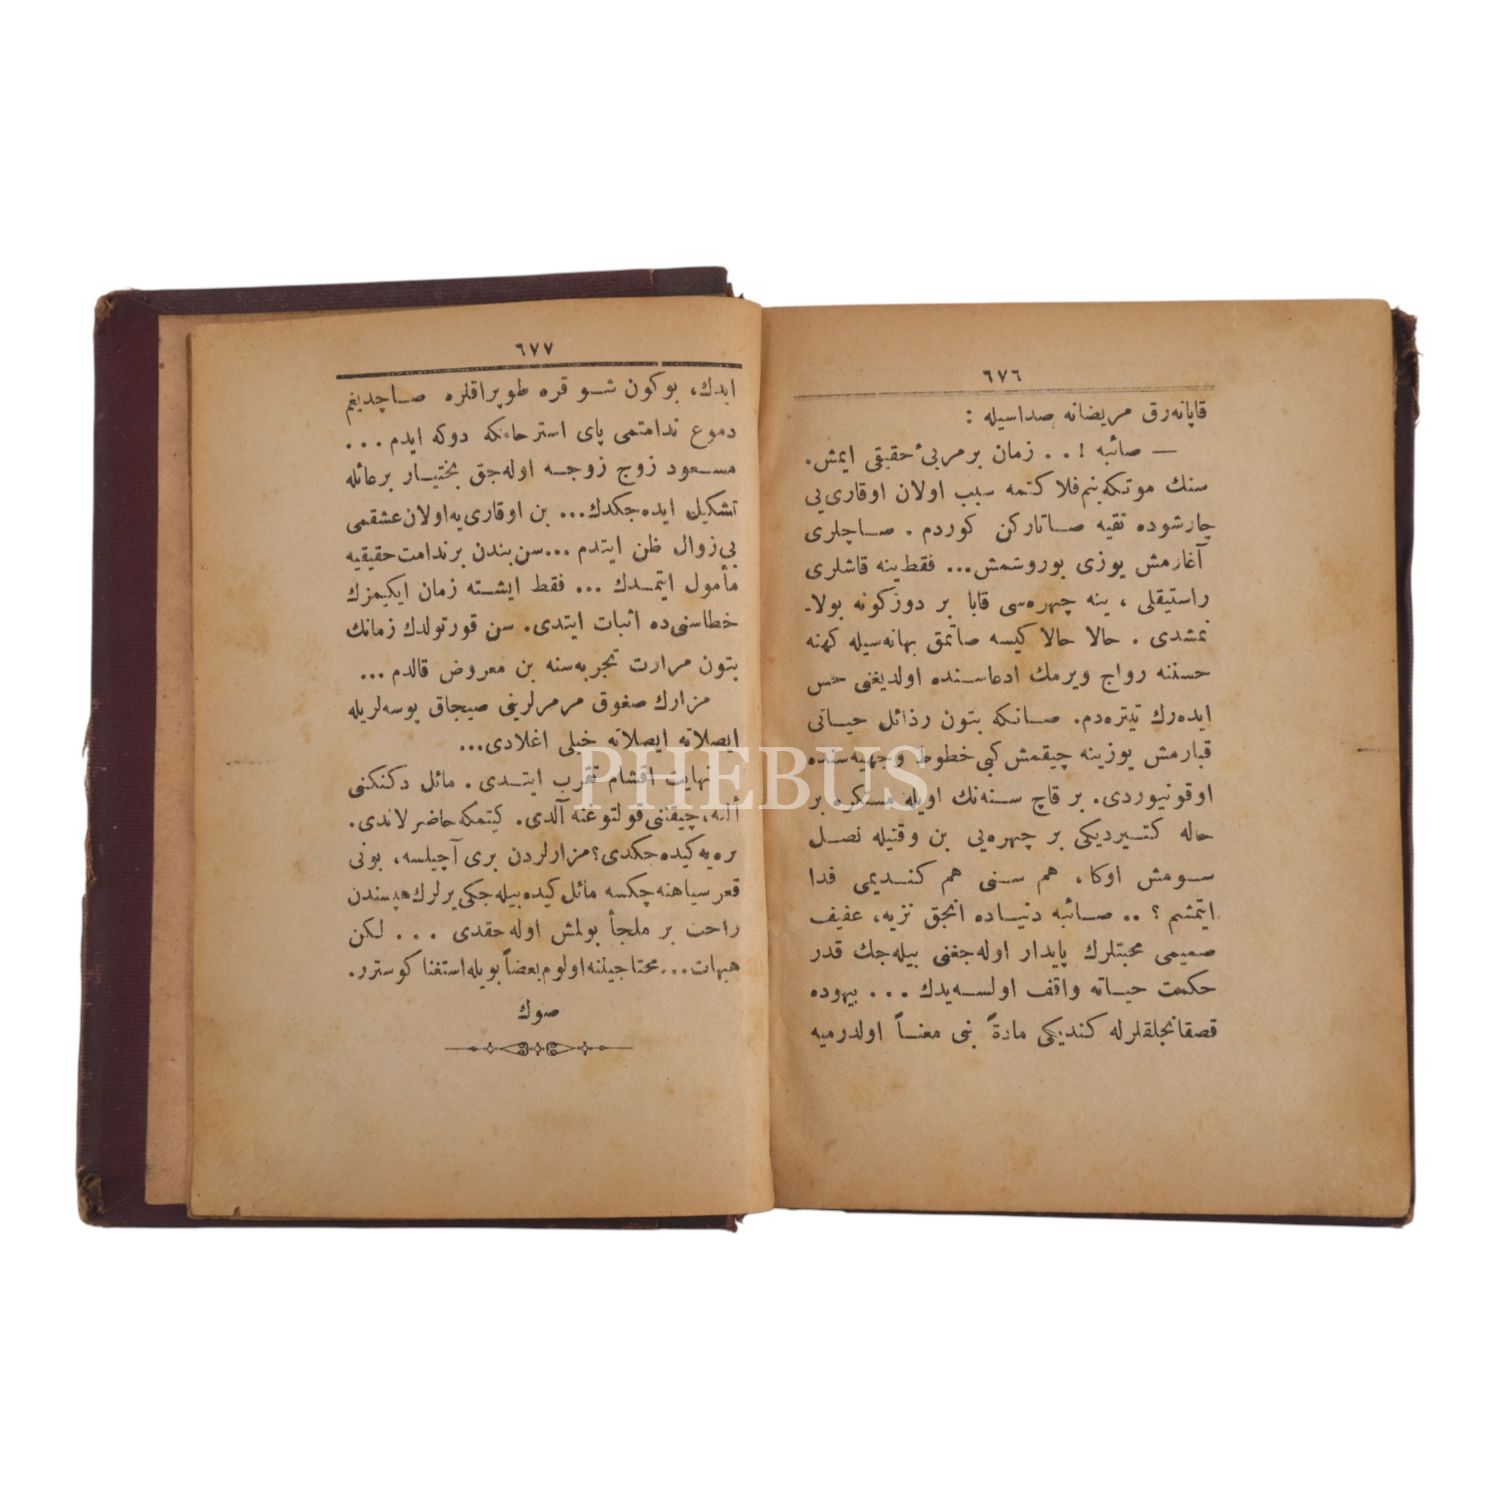 ٦٧٦
قاپانه‌رق مریضانه صداسیله :
— صائبه ! . . زمان بر مربیٔ حقیقی ایمش.
سنك موتكه بنم فلا كتمه سبب اولان اوقاری یی
چارشوده تقیه صاتاركن كوردم . صاچلری
آغارمش یوزی بوروشمش... فقط ینه قاشلری
راستیقلی ، ینه چهره‌سی قابا بر دوزكونه بولا-
نمشدی . حالا حالا كیسه صاتمق بهانه‌سیله كهنه
حسننه رواج ویرمك ادعاسنده اولدیغنی حس
ایده‌رك تیتره‌دم. صانكه بتون رذائل حیاتی
قبارمش یوزینه چیقمش كبی خطوط وجهیه‌سنده
اوقونیوردی. بر قاچ سنه‌نك اویله مسكره بر
حاله كتیردیكی بر چهره‌یی بن وقتیله نصل
سومش اوكا، هم سنی هم كندیمی فدا
ایتمشم ؟ .. صائبه دنیاده انجق نزیه، عفیف
صمیمی محبتلرك پایدار اوله‌جغنی بیله‌جك قدر
حكمت حیاته واقف اولسه‌یدك ... بیهوده
قصقانجلقلرله كندیكی مادةً بنی معناً اولدرمیه
٦٧٧
ایدك، بوكون شو قره طوپراقلره صاچدیغم
دموع ندامتمی پای استرحامكه دوكه ایدم ...
مسعود زوج زوجه اوله‌جق بختیار بر عائله
تشكیل ایده‌جكدك... بن اوقاری یه اولان عشقمی
بی زوال ظن ایتدم ...سن بندن بر ندامت حقیقیه
مأمول ایتمدك ... فقط ایشته زمان ایكیمزك
خطاسنی ده اثبات ایتدی. سن قورتولدك زمانك
بتون مرارت تجربه‌سنه بن معروض قالدم ...
مزارك صغوق مرمرلرینی صیجاق بوسه‌لریله
ایصلاته ایصلاته خیلی اغلادی...
نهایت اقشام تقرب ایتدی . مائل دكنكنی
ألنه، چیقننی قولتوغنه آلدی. كیتمكه حاضرلاندی.
نره‌یه كیده‌جكدی؟ مزارلردن بری آچیلسه، بونی
قعر سیاهنه چكسه مائل كیده‌بیله‌جكی یرلرك هپسندن
راحت بر ملجأ بولمش اوله‌جقدی ... لكن
هیهات... محتاجیلننه اولوم بعضاً بویله استغنا كوسترر.
صوك
PHEBUS